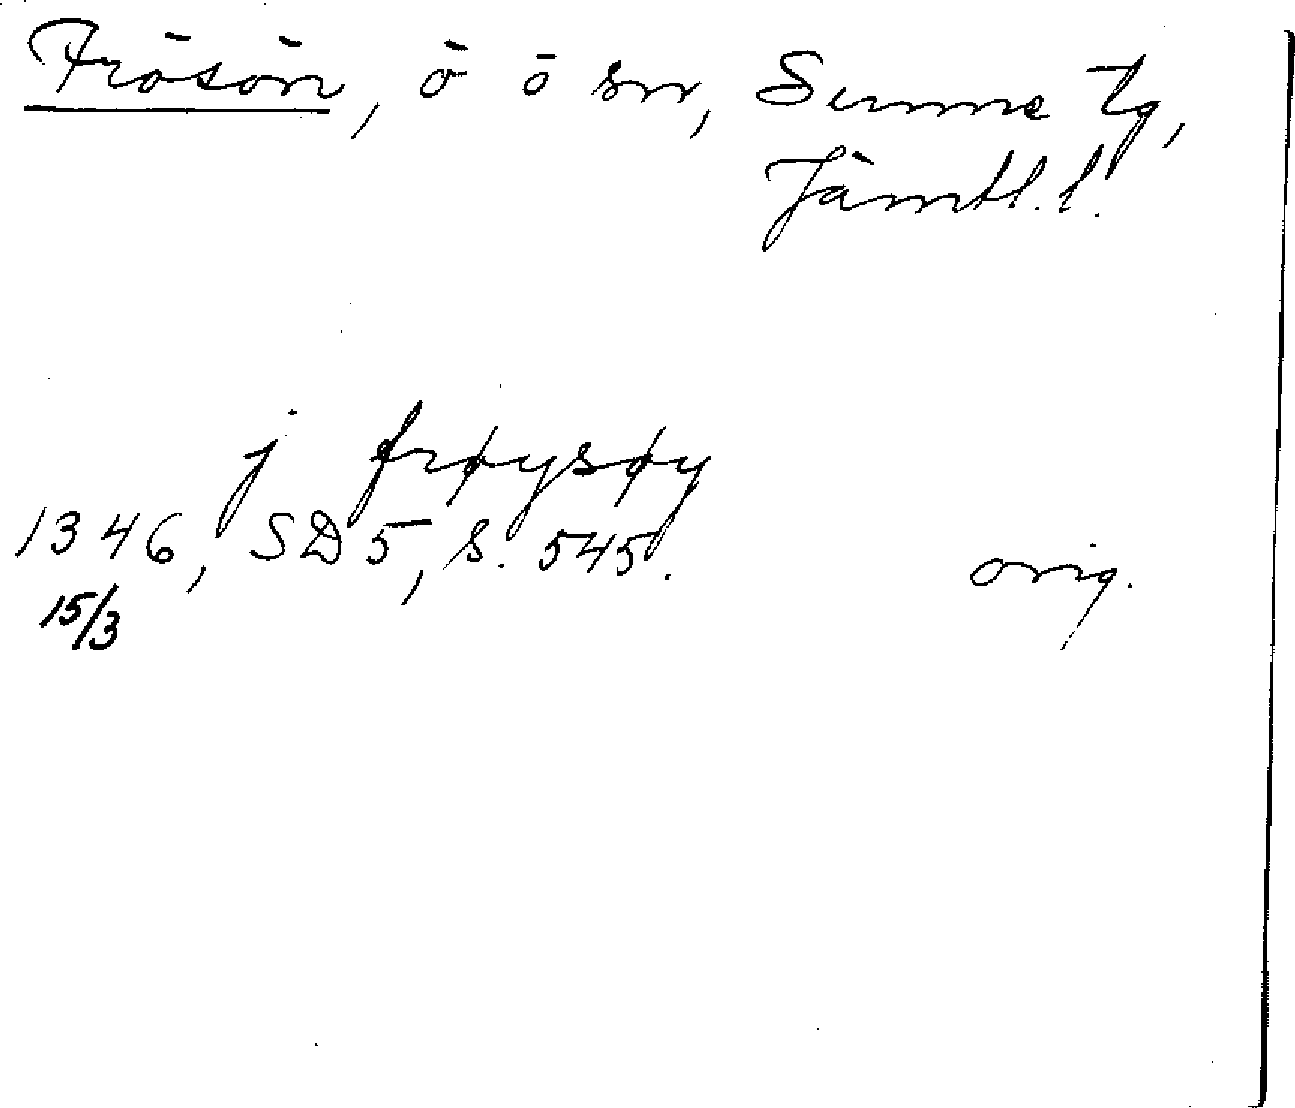 Frösön, ö o sn, Sunne tg,
Jämtl. l.
j frøysøy
1346, SD 5, s. 545.
orig.
15/3